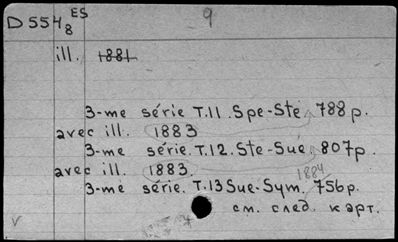 D 554/8 ES 9
ill. 1881
3-me série T.11. Spe-Ste 788 p.
avec ill. 1883
3-me série. T.12. Ste-Sue 807p.
avec ill. 1883. 1884
3-me série. T.13 Sue-Sym. 756p.
см. след. карт.
V